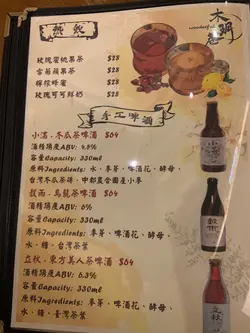 熱飲
木調蔥
wonderful
玫瑰蜜桃果茶 $28
雪菊蘋果茶 $28
檸檬蜂蜜 $28
玫瑰可可鮮奶 $28
手工啤酒
小滿-冬瓜茶啤酒 $64
酒精濃度ABV: 4.8%
容量Capacity: 330ml
原料Ingredients: 水、麥芽、啤酒花、酵母、
台灣冬瓜茶磚、中都農合國產小麥
穀雨-烏龍茶啤酒 $64
酒精濃度ABV: 5%
容量Capacity: 330ml
原料Ingredients: 麥芽、啤酒花、酵母、
水、糖、台灣茶葉
立秋-東方美人茶啤酒 $64
酒精濃度ABV: 6.3%
容量Capacity: 330ml
原料Ingredients: 麥芽、啤酒花、酵母、
水、糖、臺灣茶葉
小滿
穀雨
立秋